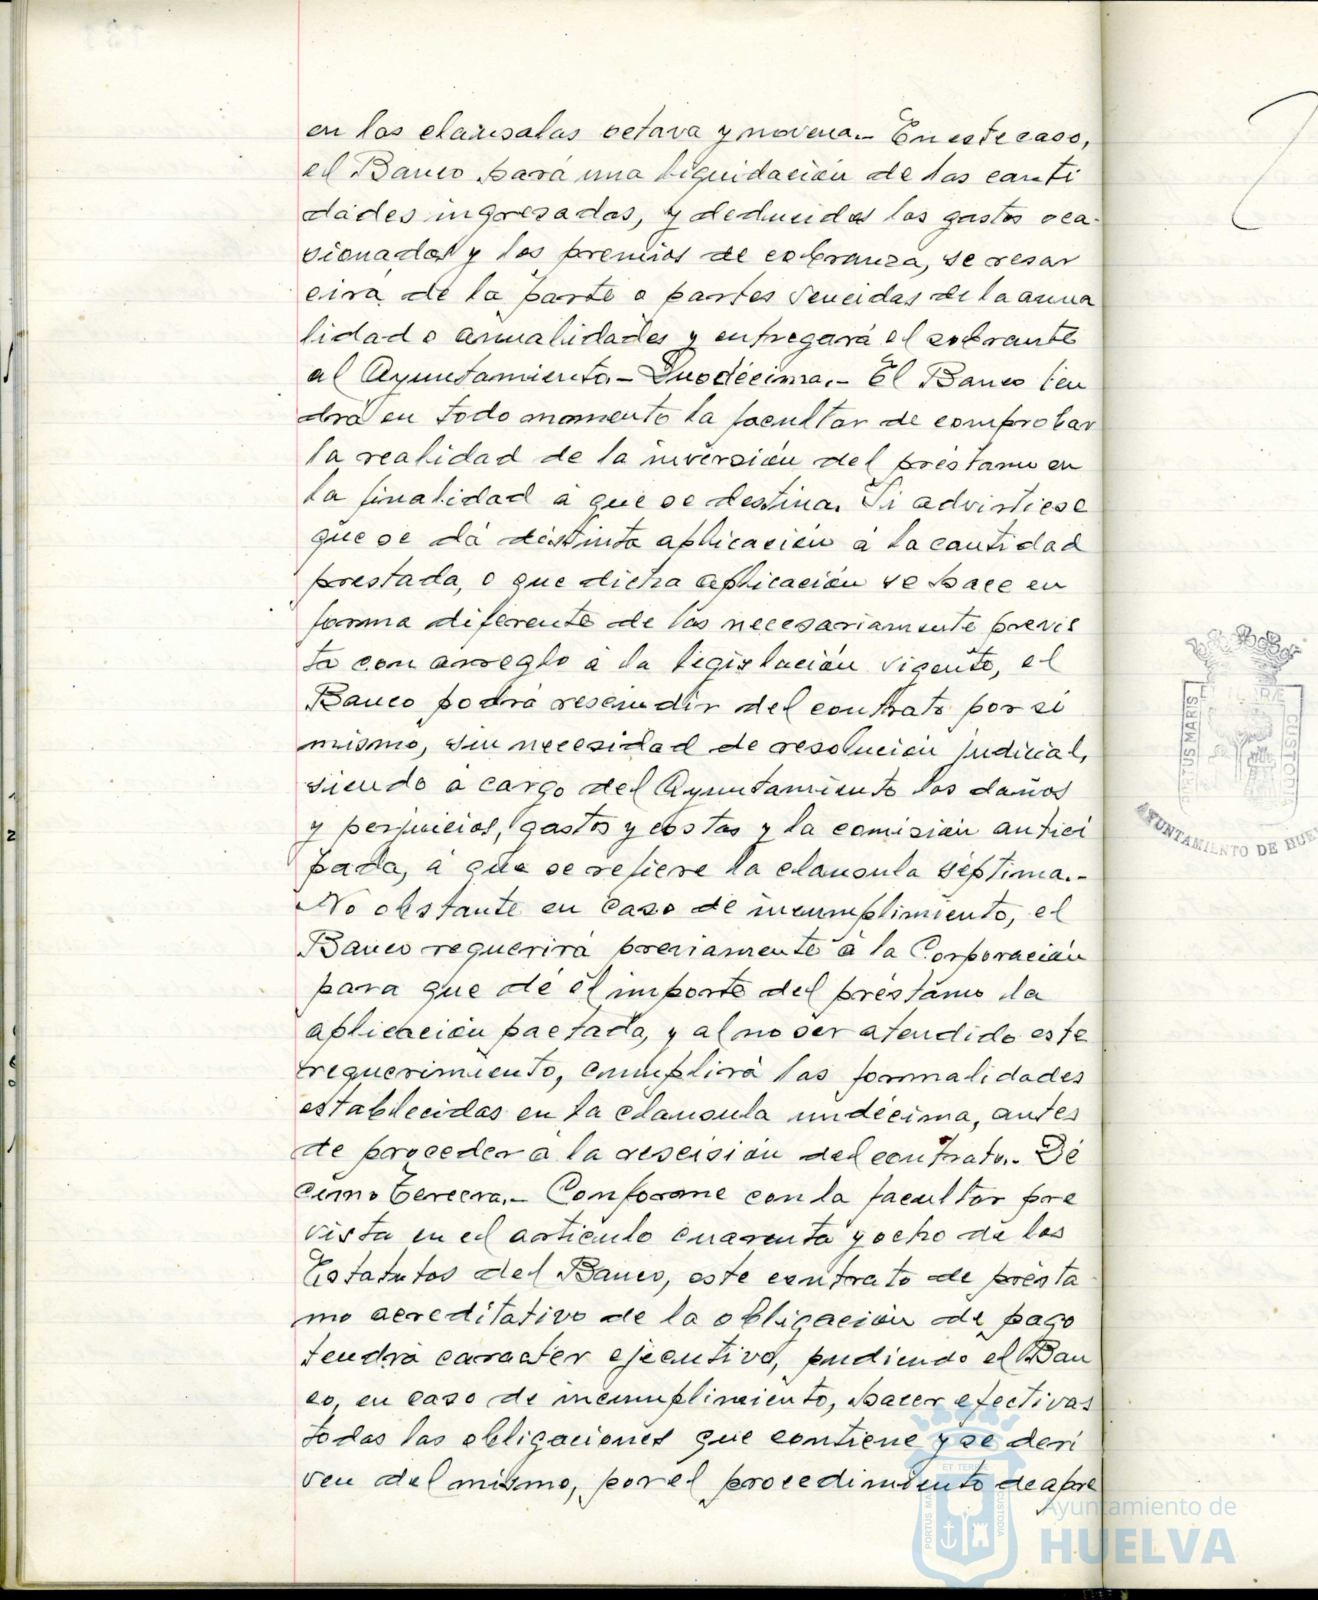 en las clausulas octava y novena.- En este caso,
el Banco hará una liquidación de las canti
dades ingresadas, y deducidos los gastos oca-
sionados y los premios de cobranza, se resar
cirá de la parte o partes vencidas de la anua
lidad o anualidades y entregará el sobrante
al Ayuntamiento.- Duodécima.- El Banco ten
drá en todo momento la facultar de comprobar
la realidad de la inversión del préstamo en
la finalidad á que se destina. Si advirtiese
que se dá distinta aplicación á la cantidad
prestada, o que dicha aplicación se hace en
forma diferente de las necesariamente previs
ta con arreglo á la legislación vigente, el
Banco podrá rescindir del contrato por sí
mismo, sin necesidad de resolución judicial,
siendo á cargo del Ayuntamiento los daños
y perjuicios, gastos y costas y la comisión antici
pada, á que se refiere la clausula séptima.-
No obstante en caso de incumplimiento, el
Banco requerirá previamente á la Corporación
para que dé el importe del préstamo la
aplicación pactada, y al no ser atendido este
requerimiento, cumplirá las formalidades
establecidas en la clausula undécima, antes
de proceder á la rescisión del contrato.- Dé
cimo tercera.- Conforme con la facultar pre
vista en el articulo cuarenta y ocho de los
Estatutos del Banco, este contrato de présta
mo acreditativo de la obligación de pago
tendrá caracter ejecutivo, pudiendo el Ban
co, en caso de incumplimiento, hacer efectivas
todas las obligaciones que contiene y se deri
ven del mismo, por el procedimiento de apre
PORTUS MARIS
ET TERRÆ
CUSTODIA
AYUNTAMIENTO DE HUE
ET TERRÆ
PORTUS MA
CUSTODIA
Ayuntamiento de
HUELVA